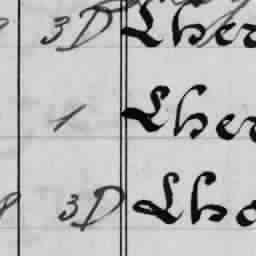 3D Lher
1 Lher
3D Lho